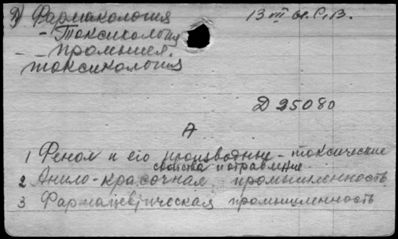 9) Фармакология 13 III
- Токсикология
- промышл.
токсикология
Д 25080
А
1 Фенол и его производные - токсические
свойства и отравление
2 Анило-красочная промышленность
3 Фармацевтическая промышленность